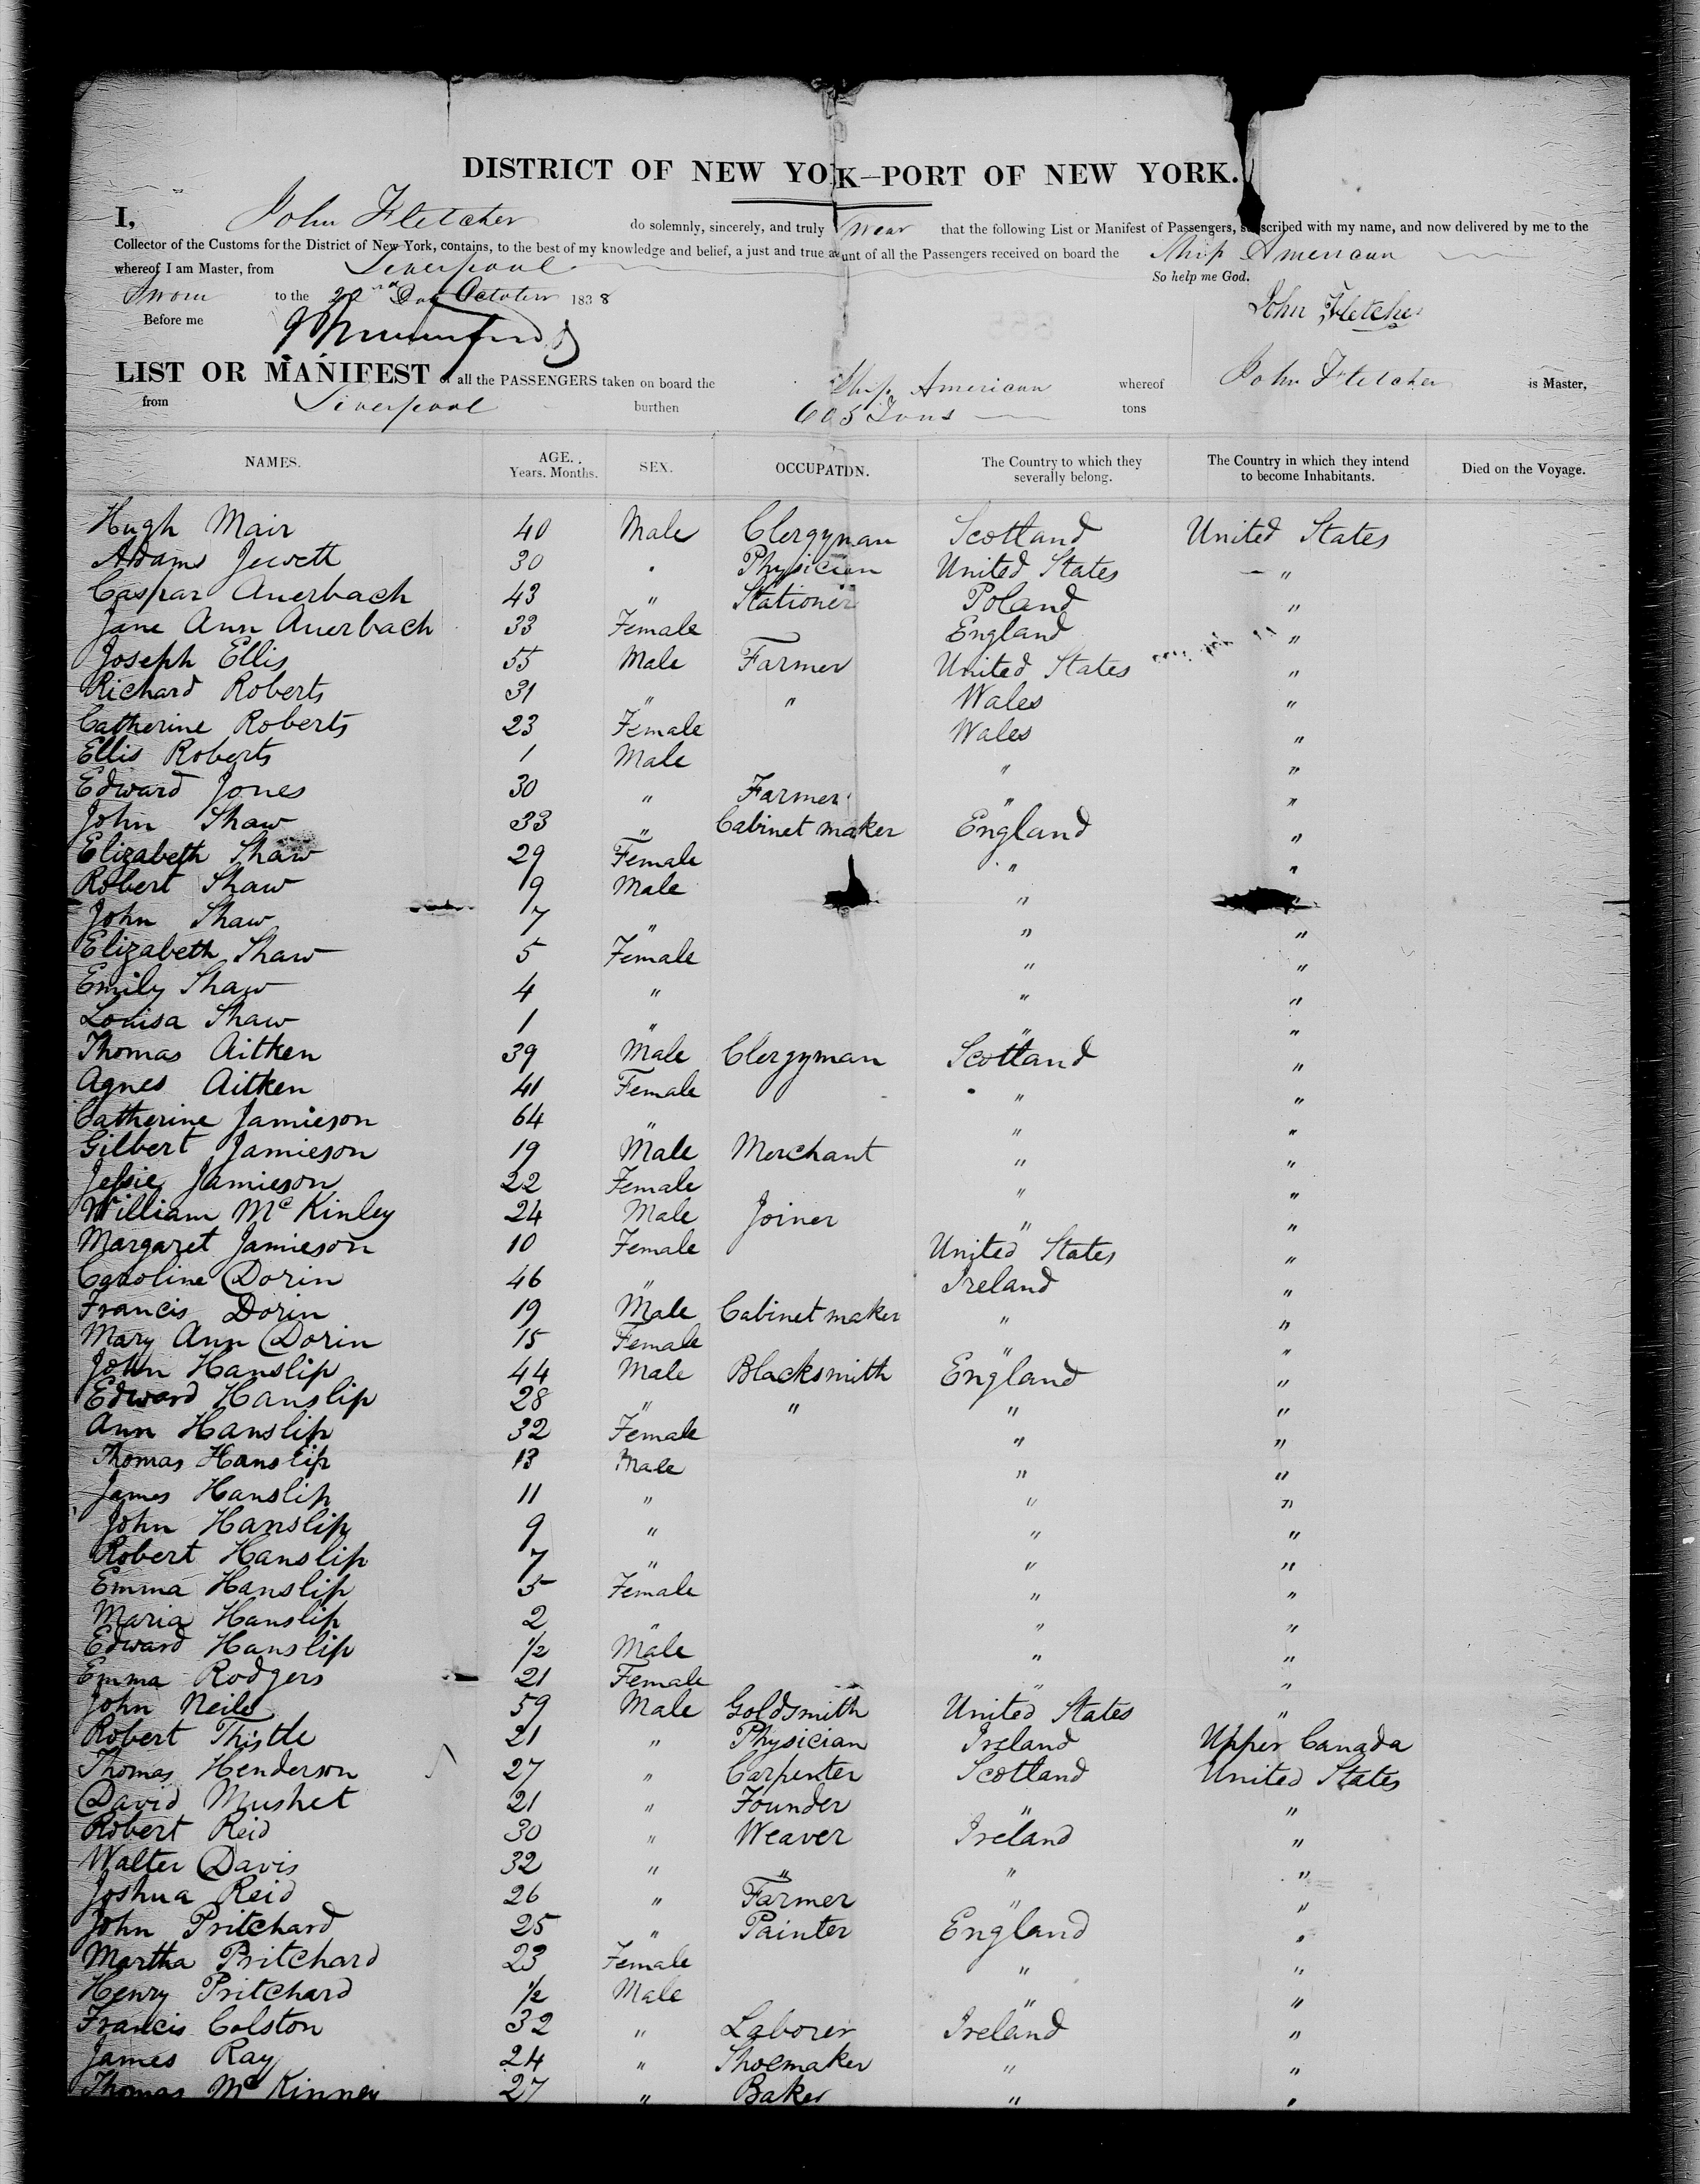 DISTRICT OF NEW YO K—PORT OF NEW YORK.
I, John Fletcher do solemnly, sincerely, and truly swear that the following List or Manifest of Passengers, subscribed with my name, and now delivered by me to the
Collector of the Customs for the District of New York, contains, to the best of my knowledge and belief, a just and true a unt of all the Passengers received on board the Ship American
whereof I am Master, from Liverpool So help me God.
Sworn to the 22nd Day October 1838 John Fletcher
Before me
LIST OR MANIFEST of all the PASSENGERS taken on board the Ship American whereof John Fletcher is Master,
from Liverpool burthen 605 Tons tons
NAMES. AGE. Years. Months. SEX. OCCUPATDN. The Country to which they severally belong. The Country in which they intend to become Inhabitants. Died on the Voyage.
Hugh Mair 40 Male Clergyman Scotland United States
Adams Jewett 30 " Physician United States "
Caspar Auerbach 43 " Stationer Poland "
Jane Ann Auerbach 33 Female England "
Joseph Ellis 55 Male Farmer United States "
Richard Roberts 31 " " Wales "
Catherine Roberts 23 Female Wales "
Ellis Roberts 1 Male " "
Edward Jones 30 " Farmer " "
John Shaw 33 " Cabinet maker England "
Elizabeth Shaw 29 Female " "
Robert Shaw 9 Male " "
John Shaw 7 " " "
Elizabeth Shaw 5 Female " "
Emily Shaw 4 " " "
Louisa Shaw 1 " " "
Thomas Aitken 39 Male Clergyman Scotland "
Agnes Aitken 41 Female " "
Catherine Jamieson 64 " " "
Gilbert Jamieson 19 Male Merchant " "
Jessie Jamieson 22 Female " "
William McKinley 24 Male Joiner " "
Margaret Jamieson 10 Female United States "
Caroline Dorin 46 " Ireland "
Francis Dorin 19 Male Cabinet maker " "
Mary Ann Dorin 15 Female " "
John Hanslip 44 Male Blacksmith England "
Edward Hanslip 28 " " " "
Ann Hanslip 32 Female " "
Thomas Hanslip 13 Male " "
James Hanslip 11 " " "
John Hanslip 9 " " "
Robert Hanslip 7 " " "
Emma Hanslip 5 Female " "
Maria Hanslip 2 " " "
Edward Hanslip 1/2 Male " "
Emma Rodgers 21 Female " "
John Neile 59 Male Goldsmith United States "
Robert Thistle 21 " Physician Ireland Upper Canada
Thomas Henderson 27 " Carpenter Scotland United States
David Mushet 21 " Founder " "
Robert Reid 30 " Weaver Ireland "
Walter Davis 32 " " " "
Joshua Reid 26 " Farmer " "
John Pritchard 25 " Painter England "
Martha Pritchard 23 Female " "
Henry Pritchard 1/2 Male " "
Francis Colston 32 " Laborer Ireland "
James Ray 24 " Shoemaker " "
Thomas McKinney 27 " Baker " "